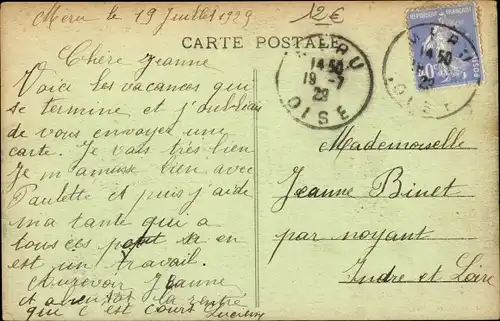 Meru le 19 Juillet 1929
12€
CARTE POSTALE
Chère Jeanne
Voici les vacances qui
se termine et j'oubliais
de vous envoyer une
carte. Je vais très bien
Je m'amuse bien avec
Paulette et puis j'aide
ma tante qui a
tous ces en
est un travail.
Aurevoir Jeanne
et la rentré
que c'est court Lucienne
MÉRU
14 50
19 -7
29
OISE
RÉPUBLIQUE FRANÇAISE
MÉRU
14 50
29
OISE
Mademoiselle
Jeanne Binet
par noyant
Indre et Loire